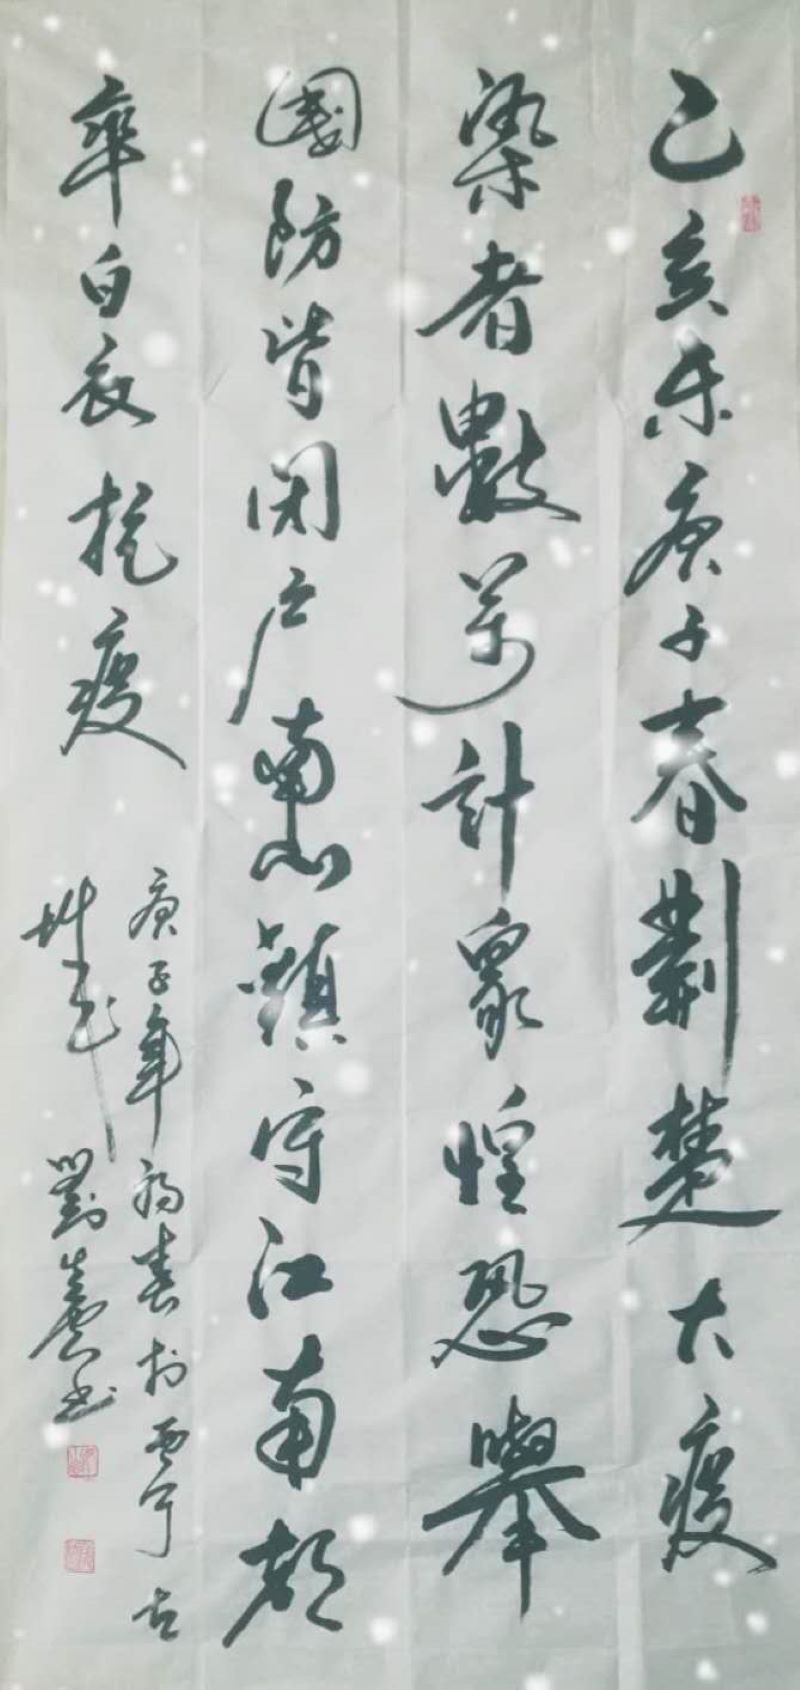 己亥末庚子春荊楚大疫
染者數萬計眾惶恐舉
國防皆閉户南山鎮守江南都
率白衣抗疫
庚子年初春於西宁古
城 劉 書